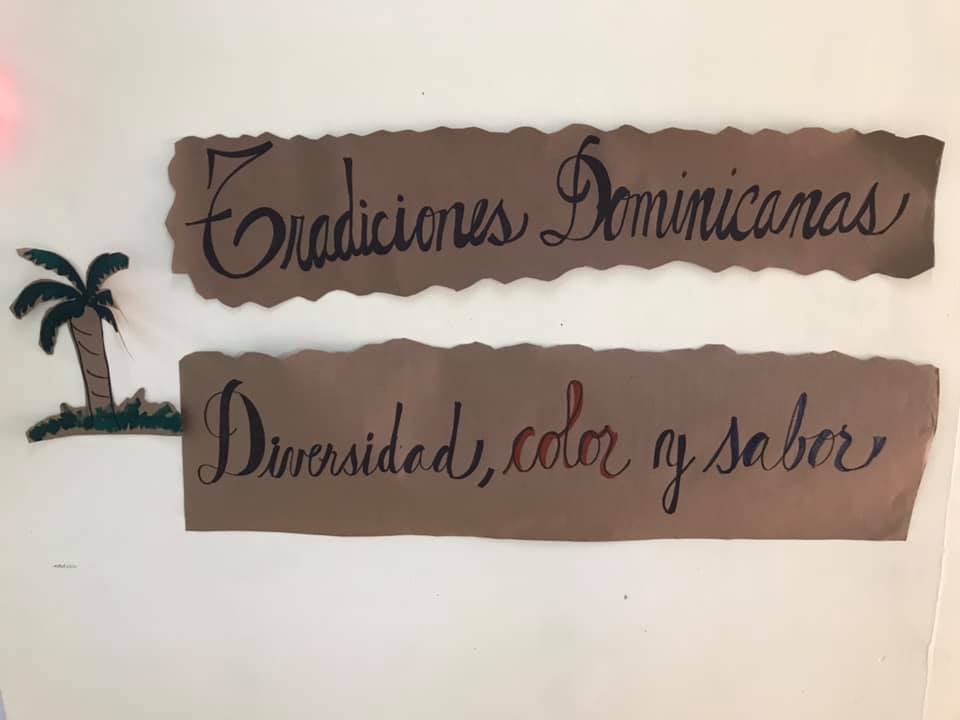 Tradiciones Dominicanas
Diversidad, color y sabor